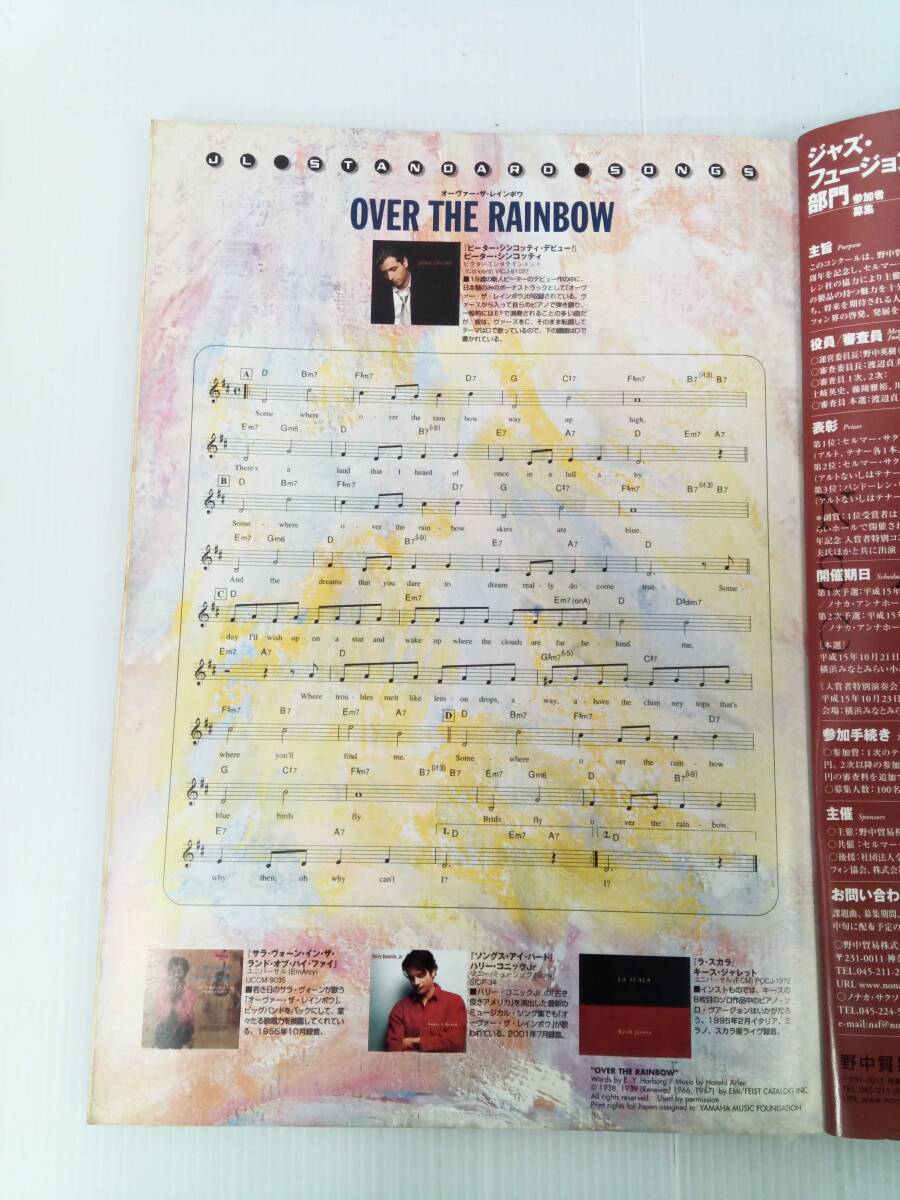 JL●STANDARD●SONGS
オーヴァー・ザ・レインボウ
OVER THE RAINBOW
「ピーター・シンコッティ・デビュー!」
ピーター・シンコッティ
ビクターエンタテインメント
(Concord) VICJ-61027
■19歳の新人ピーターのデビュー作の中に、
日本盤のみのボーナストラックとして「オーヴ
ァー・ザ・レインボウ」が収録されている。ヴ
ァースから入って自らのピアノで弾き語り。
一般的にはE♭で演奏されることの多い曲だ
が、彼は、ヴァースをC、そのまま転調して
テーマはDで歌っているので、下の譜面はDで
書かれている。
A D Bm7 F♯m7 D7 G C♯7 F♯m7 B7(♭13) B7
Some - where o - ver the rain - bow way up high,
Em7 Gm6 D B7(♭9) E7 A7 D Em7 A7
There's a land that I heard of once in a lull - a by
B D Bm7 F♯m7 D7 G C♯7 F♯m7 B7(♭13) B7
Some - where o - ver the rain - bow skies are blue,
Em7 Gm6 D B7(♭9) E7 A7 D
And the dreams that you dare to dream real - ly do come true. Some -
C D Em7 Em7(onA) D D♯dim7
- day I'll wish up - on a star and wake up where the clouds are far be hind me,
Em7 A7 D G♯m7(♭5) C♯7
Where trou - bles melt like lem - on drops, a - way, a - bove the chim - ney tops that's
F♯m7 B7 Em7 A7 D D Bm7 F♯m7 D7
where you'll find me. Some - where o - ver the rain - bow
G C♯7 F♯m7 B7(♭13) B7 Em7 Gm6 D B7(♭9)
blue - birds fly Brids fly o - ver the rain - bow,
E7 A7 1. D Em7 A7 2. D
why then, oh why can't I? I?
「サラ・ヴォーン・イン・ザ・
ランド・オブ・ハイ・ファイ」
ユニバーサル (EmArcy)
UCCM-9035
■若き日のサラ・ヴォーンが歌う
「オーヴァー・ザ・レインボウ」。
ビッグバンドをバックにして、堂
々たる歌唱力を披露してくれてい
る。1955年10月録音。
Harry Connick, Jr
Songs I Heard
「ソングス・アイ・ハード」
ハリー・コニックJr
ソニーミュージック (Sony)
SICP-34
■ハリー・コニックJr.の「古き
良きアメリカ」を演出した最新の
ミュージカル・ソング集でも「オ
ーヴァー・ザ・レインボウ」が歌
われている。2001年7月録音。
LA SCALA
Keith Jarrett
「ラ・スカラ」
キース・ジャレット
ユニバーサル (ECM) POCJ-1372
■インストものでは、キースの
8枚目のソロ作品中のピアノ・ソ
ロ・ヴアージョンはいかがだろ
う。1995年2月イタリア、ミ
ラノ、スカラ座ライヴ録音。
"OVER THE RAINBOW"
Words by E. Y. Harburg / Music by Harold Arlen
© 1938, 1939 (Renewed 1966, 1967) by EMI/FEIST CATALOG INC
All rights reserved. Used by permission
Print rights for Japan assigned to YAMAHA MUSIC FOUNDATION
ジャズ・
フュージョン
部門 参加者
募集
主旨 Purpose
このコンクールは、野中貿
周年を記念し、セルマー・
レン社の協力により主催
の製品の持つ魅力を十分
ち、将来を期待される人
フォン界の啓発、発展を
役員/審査員
○運営委員長:野中英樹
○審査委員長:渡辺貞夫
○審査員 1次、2次:
土岐英史、藤陵雅裕、
○審査員 本選:渡辺貞
表彰 Prizes
第1位:セルマー・サク
(アルト、テナー各1本、
第2位:セルマー・サク
(アルトないしはテナー
第3位:バンドーレン・
(アルトないしはテナー
*副賞:1位受賞者は
らいホールで開催され
年記念 入賞者特別コン
夫氏ほかと共に出演
開催期日 Schedu
第1次予選:平成15年
/ノナカ・アンナホー
第2次予選:平成15年
/ノナカ・アンナホー
[本選]
平成15年10月21日
横浜みなとみらい小
[入賞者特別演奏会]
平成15年10月23日
会場:横浜みなとみら
参加手続き
○参加費:1次のテ
円。2次以降の参加
円の審査料を追加で
○募集人数:100名
主催 Sponsors
○主催:野中貿易株
○共催:セルマー・
○後援:社団法人全
フィン協会、株式会社
お問い合わ
課題曲、募集期間、
中旬に配布予定の
○野中貿易株式
〒231-0011 神奈
TEL.045-211-2
URL www.nona
○ノナカ・サクソ
TEL.045-224-5
e-mail:nsf@no
野中貿易
〒231-0011 神奈
TEL 045-211-2
URL www.non